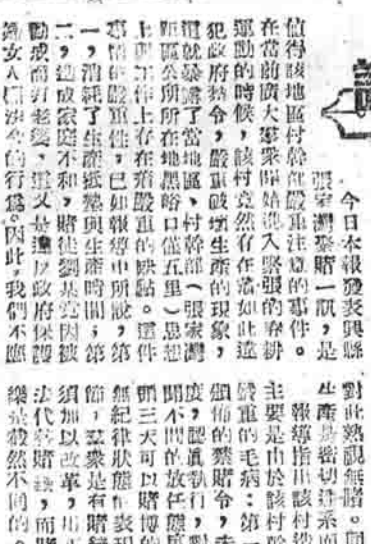 今日本報發表興縣
張家灣聚賭一訊，是
值得該地區村幹部嚴重注意的事件。
在當前廣大羣衆開始進入緊張的春耕
運動的時候，該村竟然存在着如此違
犯政府法令，嚴重破壞生產的現象，
這就暴露了當地區、村幹部（張家灣
距區公所所在地黑峪口僅五里）思想
上與工作上存在着嚴重的缺點。這件
事情的嚴重性，已如報導中所說，第
一，消耗了生產抵熱與生產時間；第
二，造成家庭不和，賭徒劉某竟因被
勸戒而打老婆，這又是違反政府保護
婦女人權法令的行爲。因此，我們不應
對此熟視無睹。與
生產是密切連系而
報導指出該村
主要是由於該村幹
嚴重的毛病：第一
頒佈的禁賭令，
度，認真執行，對
聞不問的放任態度
頭三天可以賭博的
無紀律狀態的表現
節，羣衆是有賭
須加以改革，
法代替賭錢，而賭
樂是截然不同的。